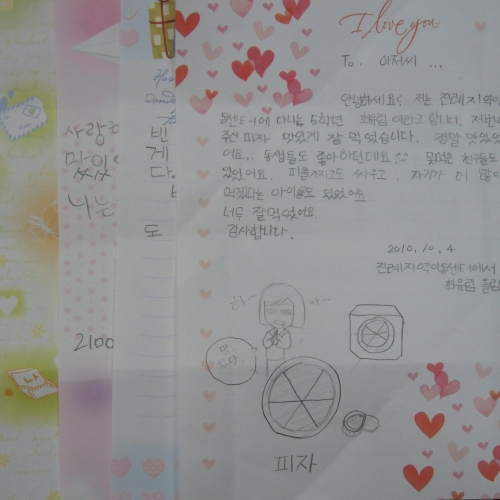 I love you
To. 아저씨 ...
안녕하세요? 저는 진례지역아
동센터에 다니는 5학년 최유림 이라고 합니다. 저번에
주신 피자 맛있게 잘 먹었습니다. 정말 맛있었
어요.. 동생들도 좋아하던데요 못먹은 친구들도
있었어요. 피클가지고도 싸우고, 자기가 더 많이
먹겠다는 아이들도 있었어요
너무 잘먹었어요.
감사합니다.
2010. 10. 4
진례지역아동센터에서
최유림 올림
피자
사랑
맛있
나는
2100
빈
게
다.
도